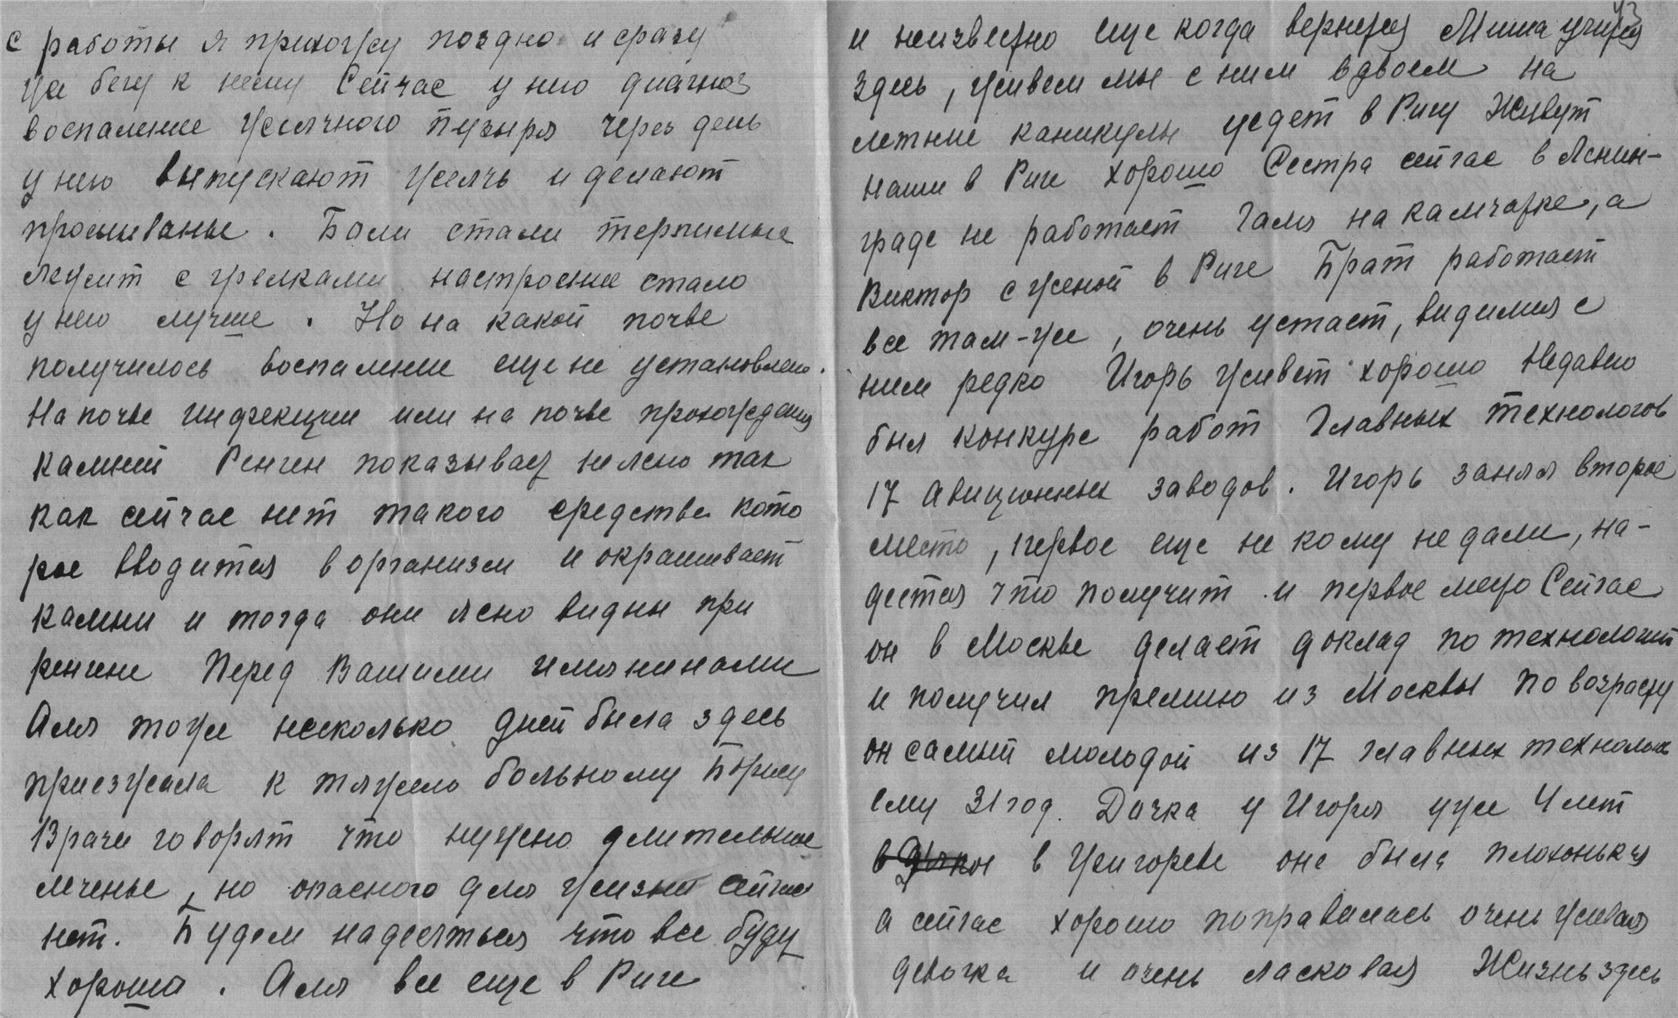 с работы я прихожу поздно и сразу
же бегу к нему Сейчас у него диагноз
воспаление желчного пузыря через день
у него выпускают желчь и делают
промыванье. Боли стали терпимые
лежит с грелками настроение стало
у него лучше. Но на какой почве
получилось воспаление еще не установлено.
На почве инфекции или на почве прохождения
камней Ренген показывает не ясно так
как сейчас нет такого средства кото
рое вводится в организм и окрашивает
камни и тогда они ясно видны при
ренгене Перед Вашими имянинами
Аля тоже несколько дней была здесь
приезжала к тяжело больному Борису
Врачи говорят что нужно длительное
леченье, но опасного для жизни сейчас
нет. Будем надеяться что все буду
хорошо. Аля все еще в Риге
и неизвестно еще когда вернется Миша учится
здесь, живем мы с ним вдвоем на
летние каникулы уедет в Ригу Живут
наши в Риге хорошо Сестра сейчас в Ленин-
граде не работает Галя на камчатке, а
Виктор с женой в Риге Брат работает
все там-же, очень устает, видимся с
ним редко Игорь живет хорошо Недавно
был конкурс работ Главных технологов
17 Авиционных заводов. Игорь занял второе
место, первое еще не кому не дали, на-
деется что получит и первое место Сейчас
он в Москве делает доклад по технологии
и получил премию из Москвы По возрасту
он самый молодой из 17 главных технолог
ему 31 год. Дочка у Игоря уже 4 лет
в Ужгороде она была плохонькая
а сейчас хорошо поправилась очень живая
девочка и очень ласковая Жизнь здесь